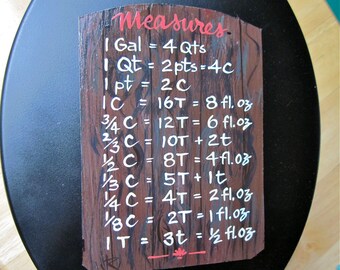 Measures
1 Gal = 4 Qts
1 Qt = 2pts = 4C
1 pt = 2 C
1 C = 16T = 8 fl.oz
3/4 C = 12T = 6 fl.oz
2/3 C = 10T + 2t
1/2 C = 8T = 4fl.oz
1/3 C = 5T + 1t
1/4 C = 4T = 2fl.oz
1/8 C = 2T = 1fl.oz
1 T = 3t = 1/2 fl.oz